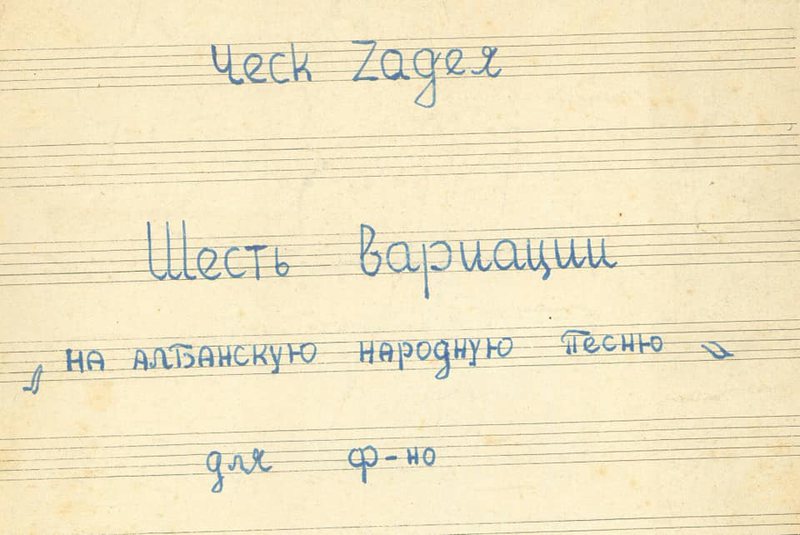 Ческ Zадея
Шесть вариации
„ на албанскую народную песню "
для ф-но